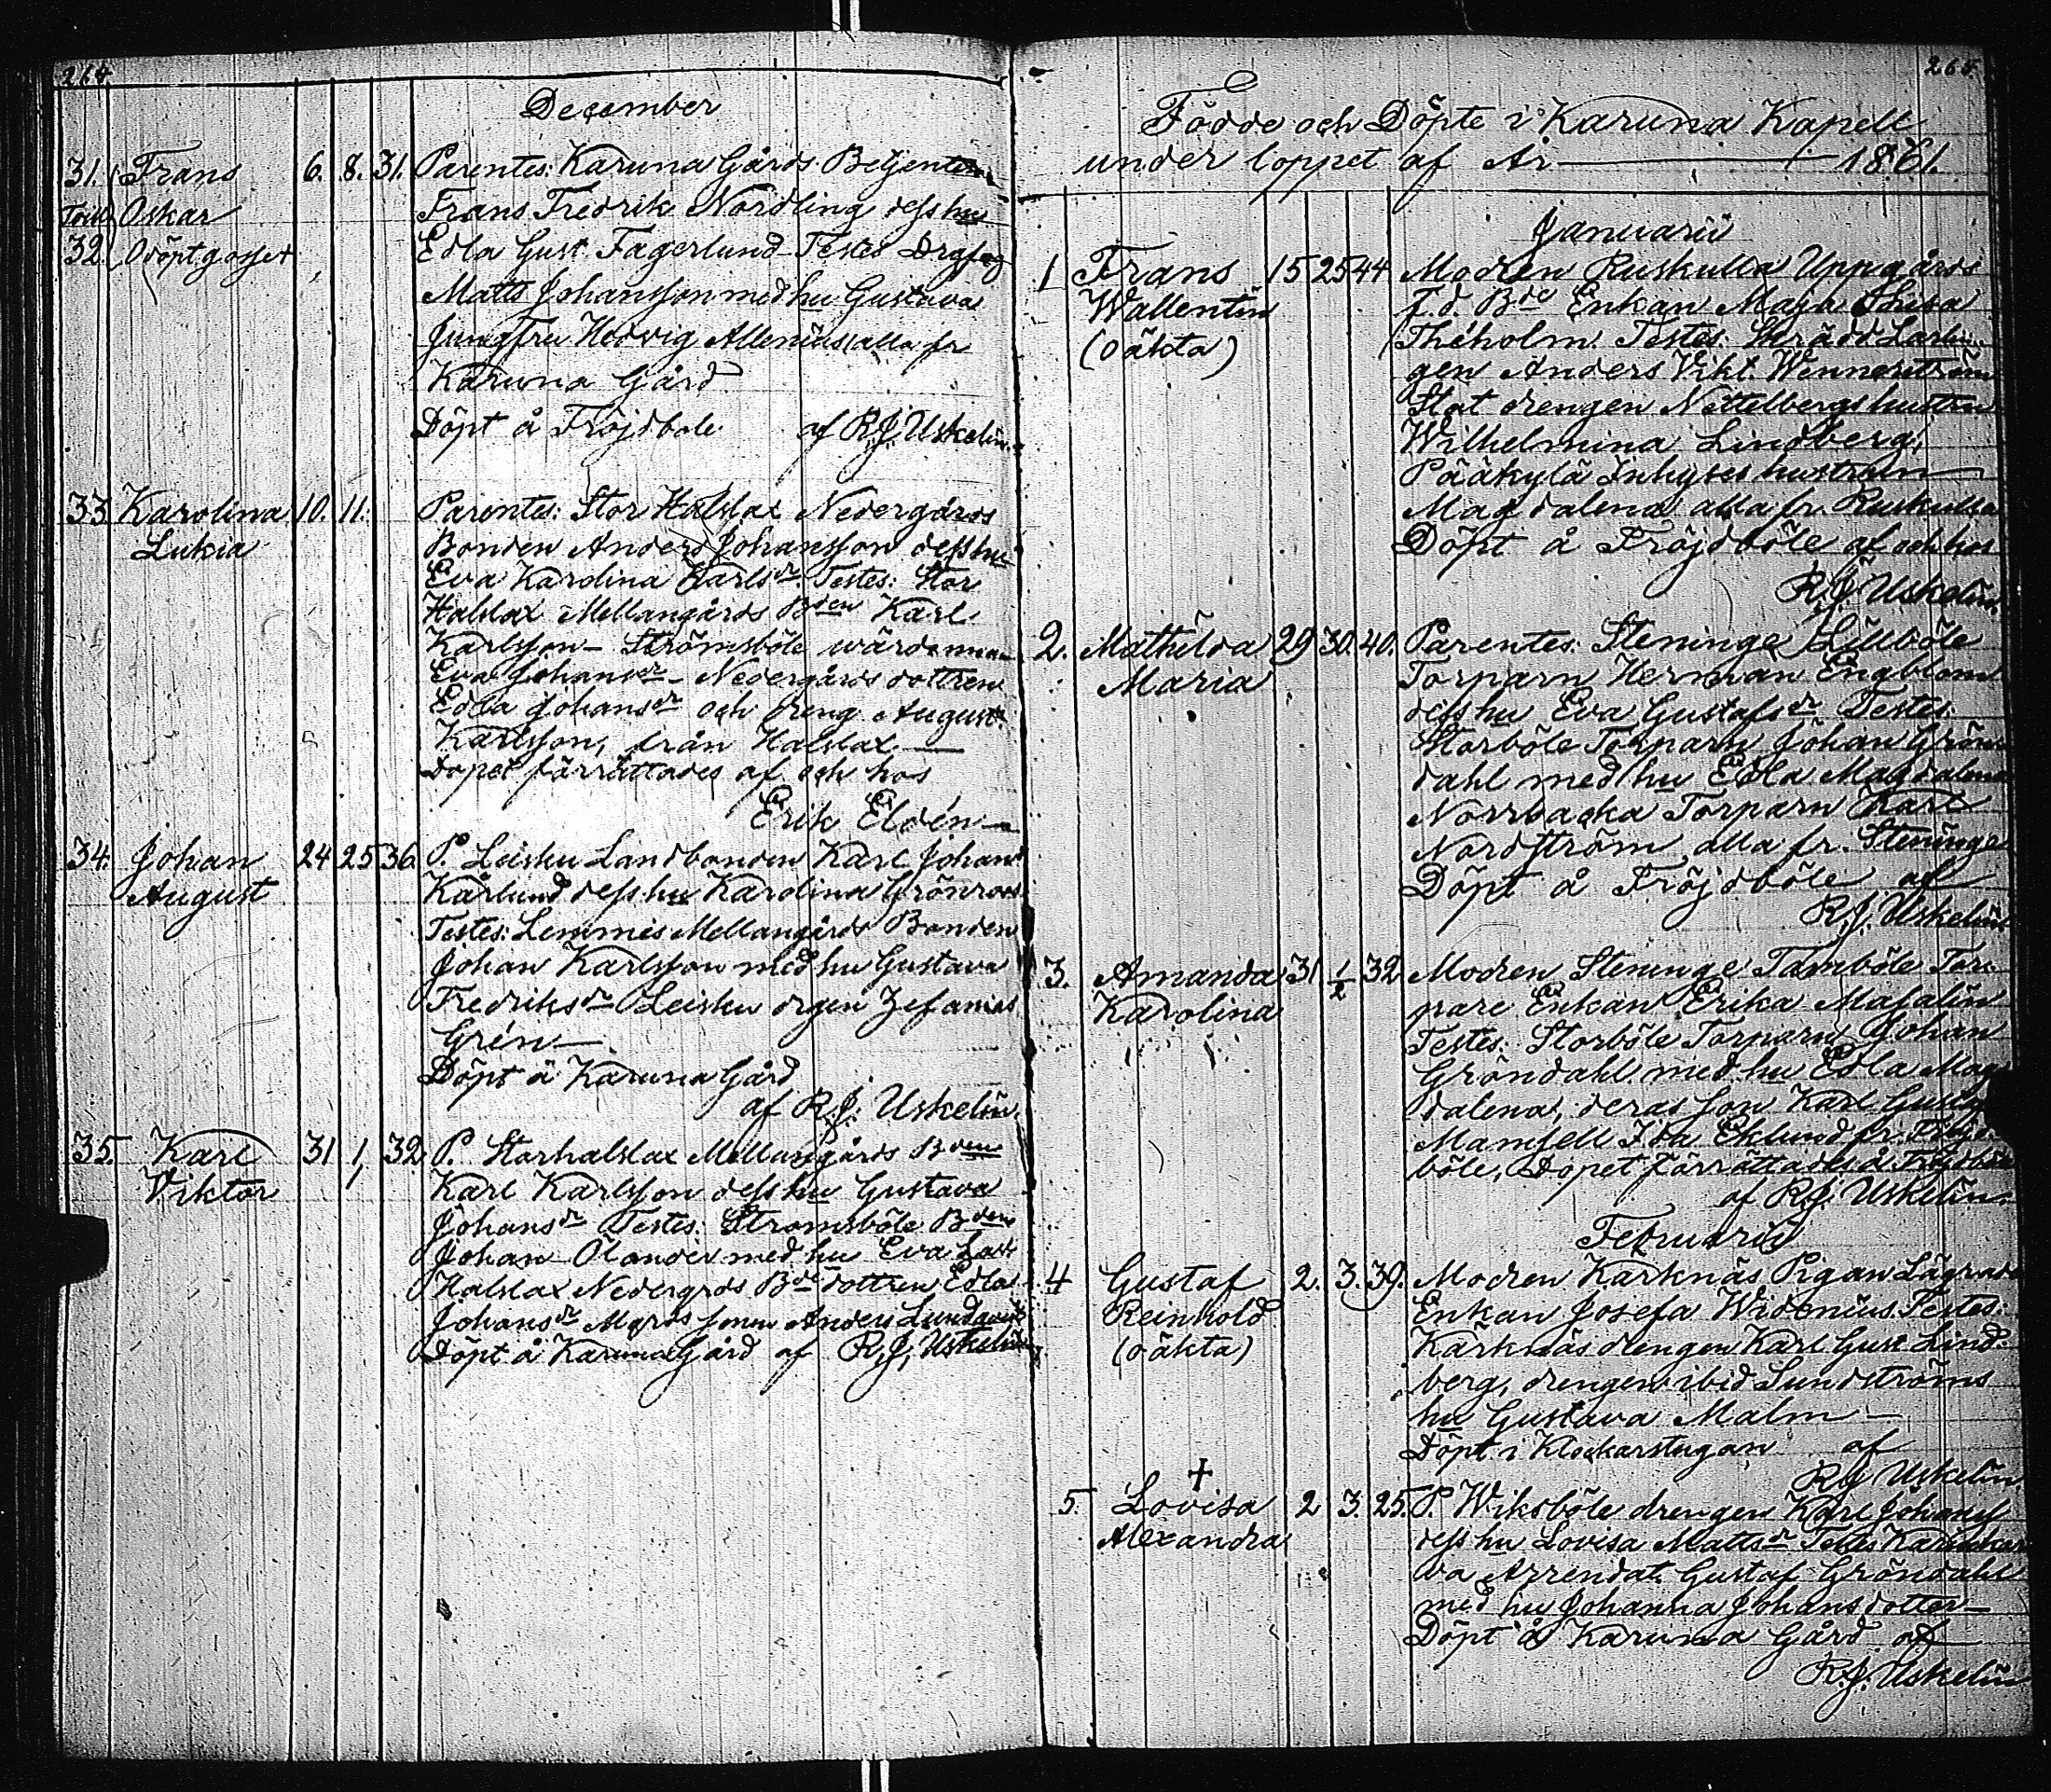 264
December
31. Frans 6. 8. 31. Parentes: Karuna Gårds Betjenten
Tvill Oskar Frans Fredrik Nordling dess hu
32. Odöpt gosse + Edla Gust. Fagerlund - Testes Drg
Matts Johansson med hu Gustava
Jungfru Hedvig Allenius alla fr
Karuna Gård
Döpt å Fröjdbole af R.J. Uskelin
33 Karolina 10. 11. Parentes: Stor Halslax Nedergårds
Lukia Bonden Anders Johansson dess hu
Eva Karolina Karlsdr. Testes: Stor
Halslax Mellangårds Bden Karl
Karlsson - Strömsböle wärdinna
Eva Johansdr - Nedergårds dottren
Edla Johansdr och dreng August
Karlsson, från Halslax —
Dopet förrättades af och hos
Erik Eldén —
34. Johan 24 25 36. P. Leisku Landbonden Karl Johan
August Karlund dess hu Karolina Grönroos
Testes: Lemmis Mellangårds Bonden
Johan Karlsson med hu Gustava
Fredriksdr Leisku drgen Zefanias
Grén —
Döpt å Karuna Gård
af R.J. Uskelin
35. Karl 31 1/1 32 P. Storhalslax Mellangårds Bden
Viktor Karl Karlsson dess hu Gustava
Johansdr Testes: Strömsböle Bden
Johan Olander med hu Eva
Halslax Nedergrds Bde dottren Edla
Johansdr Mgrds sonen Anders Lundqvist
Döpt å Karuna Gård af R.J. Uskelin
265.
Födde och Döpte i Karuna Kapell
under loppet af År — 1861.
Januarii
1 Frans 15 25 44 Modren Ruskulla Uppgårds
Wallentin f.d. Bde Enkan Maja Lhisa
(oäkta) Théholm. Testes: Skrädd. Lärlin-
gen Anders Vikt. Wennerström
Stat drengen Nettelbergs hustru
Wilhelmina Lindberg,
Pääkylä Inhyses hustrun
Magdalena alla fr. Ruskulla
Döpt å Fröjdböle af och hos
R.J. Uskelin
2. Mathilda 29 30. 40. Parentes: Steninge Lillböle
Maria Torparn Herman Engblom
dess hu Eva Gustafsdr Testes:
Storböle Torparn Johan Grön-
dahl med hu Edla Magdalena
Norrbacka Torparn Karl
Nordström alla fr. Steninge
Döpt å Fröjdböle af
R.J. Uskelin
3. Amanda 31 1/2 32 Modren Steninge Tamböle Tor-
Karolina pare Enkan Erika Masalin
Testes: Storböle Torparn Johan
Gröndahl med hu Edla Mag-
dalena, deras son Karl Gustaf
Mamsell Ida Eklund fr. Fröjd-
böle, Dopet förrättades å Fröjdböle
af R.J. Uskelin.
Februarii
4 Gustaf 2. 3. 39. Modren Karknäs Pigan
Reinhold Enkan Josefa Widenius. Testes:
(oäkta) Kärknäs drengen Karl Gust. Lind-
berg, drengen ibid Lundströms
hu Gustava Malm —
Döpt i Klockarstugan af
R.J. Uskelin
+
5. Lovisa 2 3. 25. P. Wiksböle drengen Karl Johans
Alexandra dess hu Lovisa Mattsdr Testes
Arrendat. Gustaf Gröndahl
med hu Johanna Johansdotter —
Döpt å Karuna Gård af
R.J. Uskelin